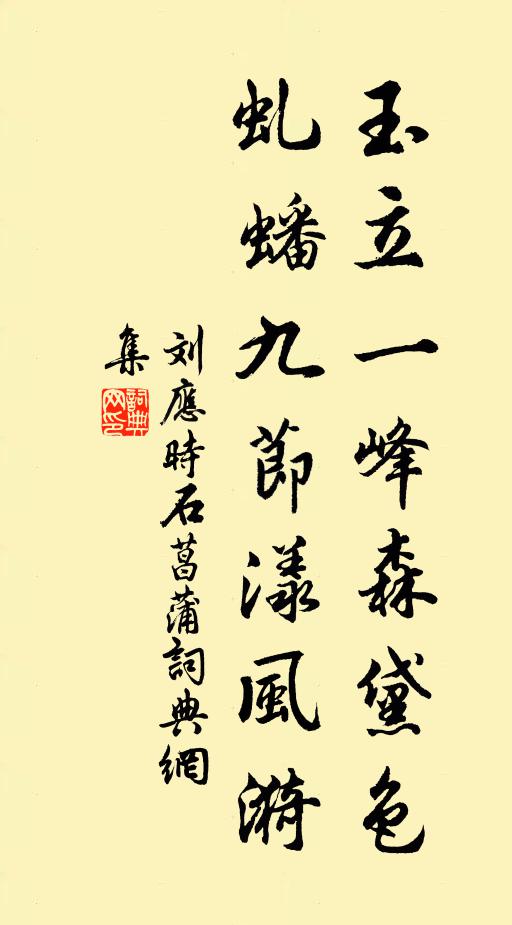 玉立一峰森黛色
虬蟠九節漾風漪
刘應時石菖蒲詞典網
集
詞典
网印